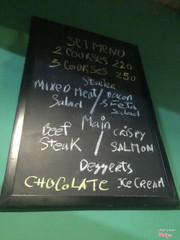 SET MENU
2 COURSES 220
3 COURSES 250
Starter
MIXED Meat / Bacon
Salad / & Feta
Salad
Main
Beef / CRISPY
Steak / SALMON
Desserts
CHOCOLATE ICE CREAM